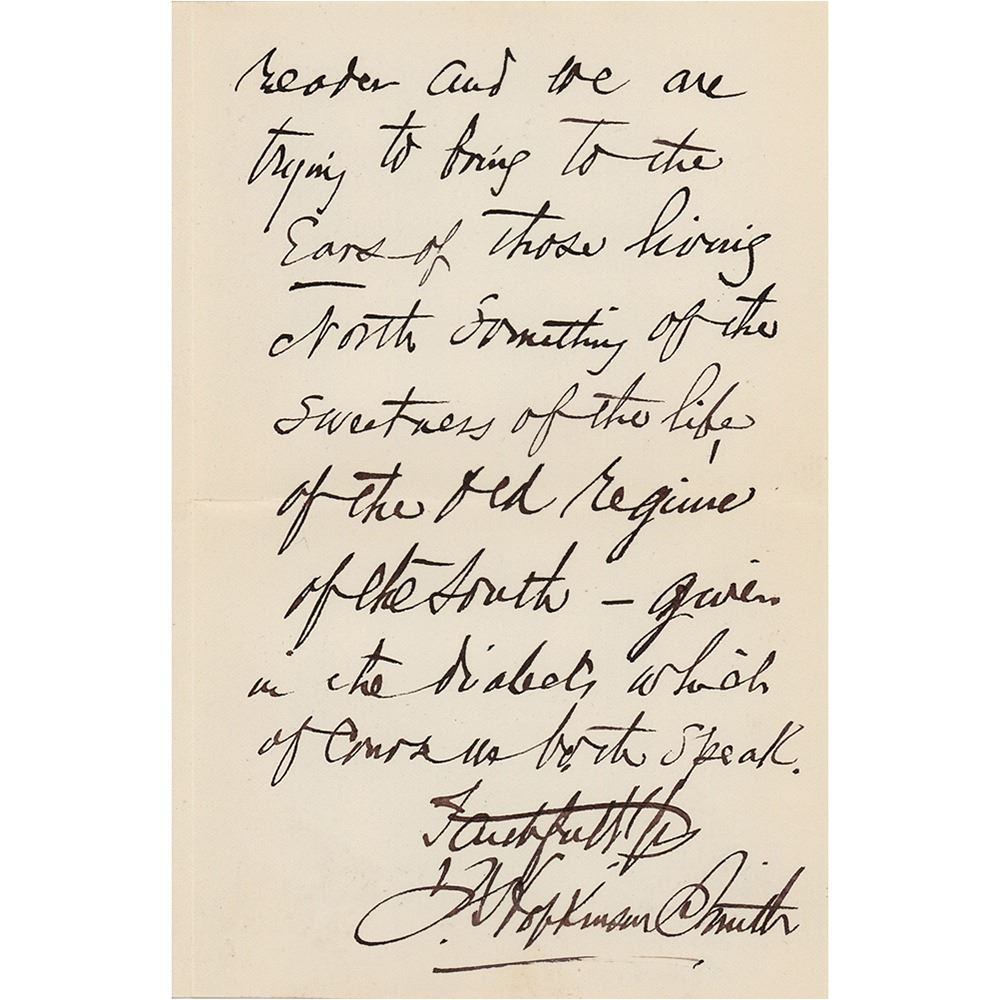 reader and we are
trying to bring to the
Ears of those living
North Something of the
Sweetness of the life
of the Old regime
of the South — given
in the dialects which
of course we both speak.
Faithfully yrs
F. Hopkinson Smith